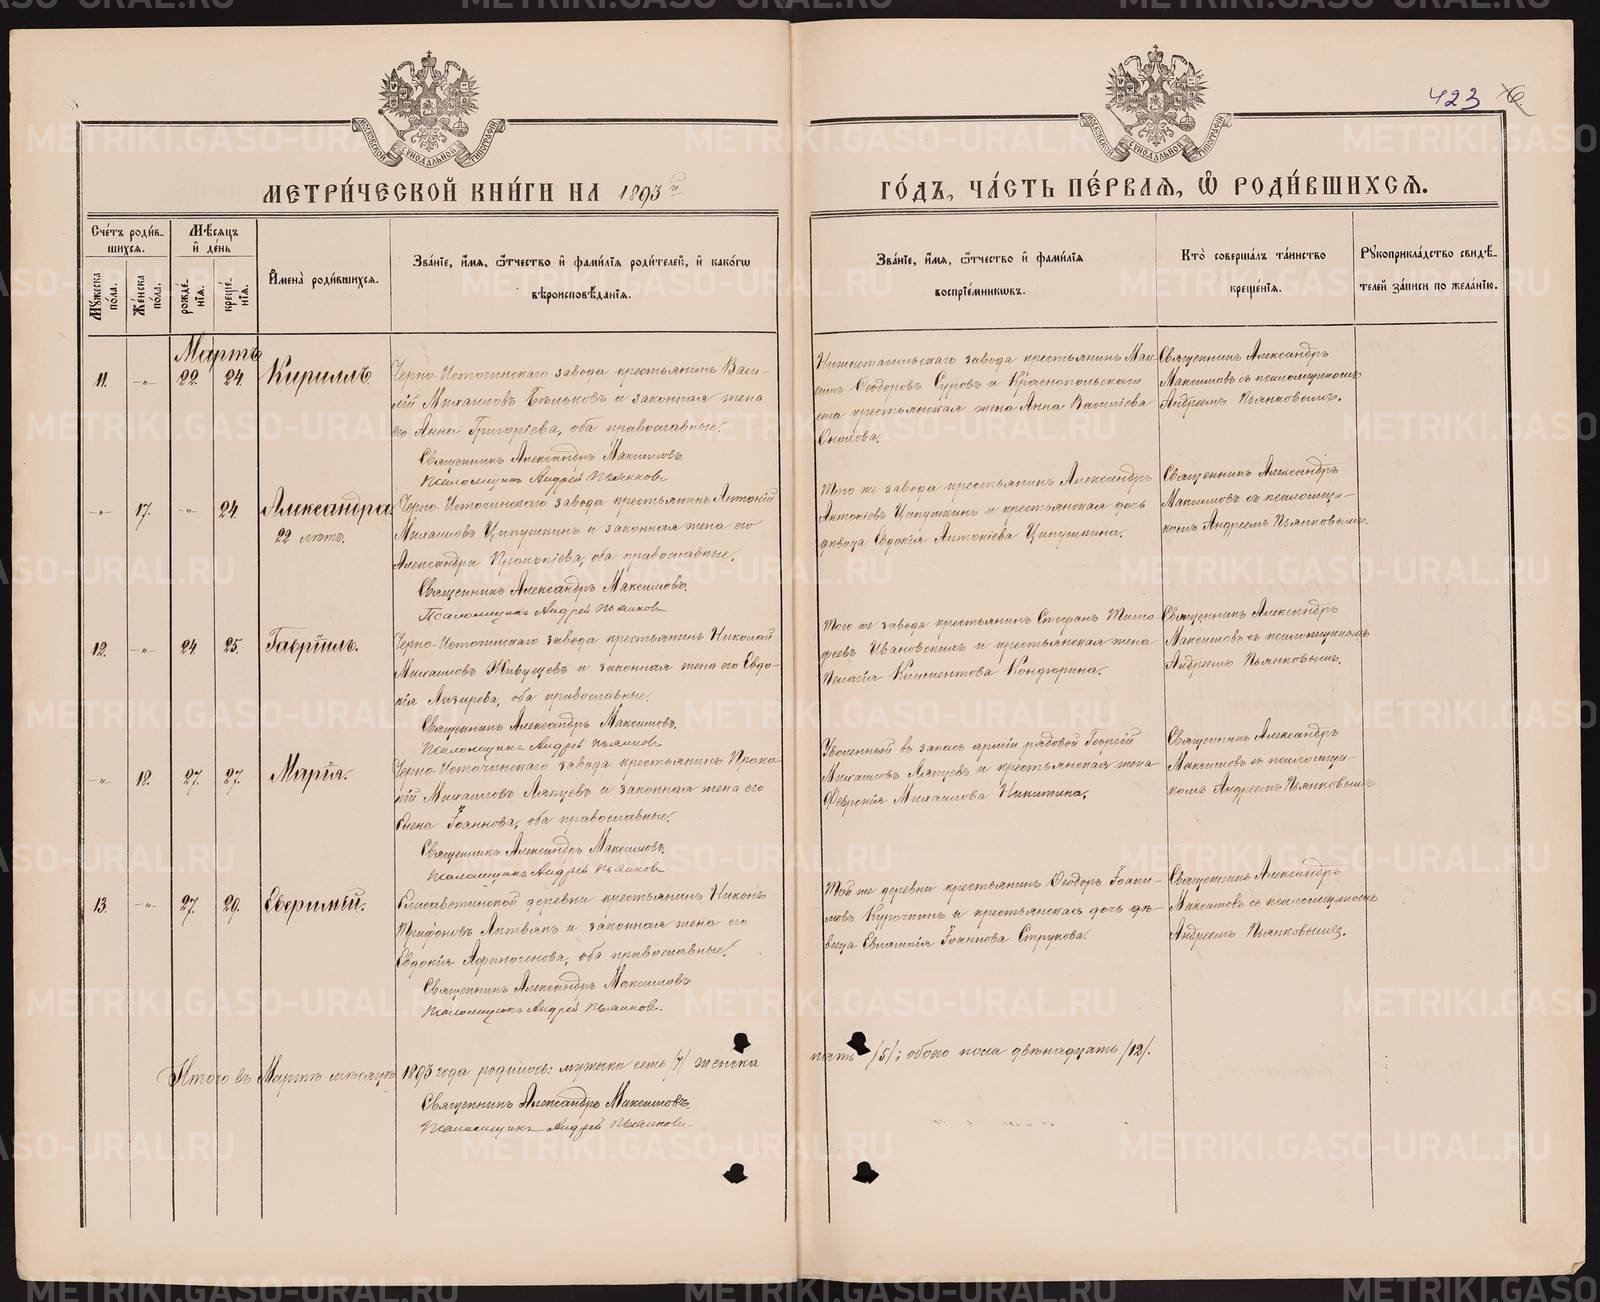 423
МОСКОВСКОЙ СУНОДАЛЬНОЙ ТИПОГРАФІИ
МОСКОВСКОЙ СУНОДАЛЬНОЙ ТИПОГРАФІИ
МЕТРИ́ЧЕСКОЙ КНИ́ГИ НА 1893й
ГО́ДЪ, ЧА́СТЬ ПЕ́РВАЯ, Ѽ РОДИ́ВШИХСЯ.
Сче́тъ роди́в-
шихся.
Мѣ́сяцъ
и҆ де́нь
Мꙋжеска по́ла.
Же́нска по́ла.
рожде́-
нїѧ.
креще́-
нїѧ.
И҆мена̀ роди́вшихся.
Зва́нїе, и҆́мя, ѻ҆́тчество и҆ фами́лїя роди́телей, и҆ како́гѡ
вѣроисповѣ́данїя.
Зва́нїе, и҆́мя, ѻ҆́тчество и҆ фами́лїя
воспрїе́мникѡвъ.
Кто̀ соверша́лъ та́инство
креще́нїя.
Рꙋкоприкла́дство свидѣ́-
телей за́писи по жела́нїю.
Мартъ
11. -„- 22. 24. Кириллъ.
Черно-Источинскаго завода крестьянинъ Васи-
лій Михаиловъ Бѣльковъ и законная жена
его Анна Григоріева, оба православные.
Священникъ Александръ Максимовъ.
Псаломщикъ Андрей Пьянковъ
Нижнетагильскаго завода крестьянинъ Мак-
симъ Ѳеодоровъ Суровъ и Краснопольскаго
села крестьянская жена Анна Василіева
Священникъ Александръ
Максимовъ съ псаломщикомъ
Андреемъ Пьянковымъ.
-„- 17. -„- 24. Александра
22 лѣтъ.
Черно-Источинскаго завода крестьянинъ Антоній
Михаиловъ Ципушкинъ и законная жена его
Александра Прокопіева, оба православные.
Священникъ Александръ Максимовъ.
Псаломщикъ Андрей Пьянковъ
Того же завода крестьянинъ Александръ
Антоніевъ Ципушкинъ и крестьянская дочь
дѣвица Евдокія Антоніева Ципушкина.
Священникъ Александръ
Максимовъ съ псаломщи-
комъ Андреемъ Пьянковымъ.
12. -„- 24. 25. Гавріилъ.
Черно-Источинскаго завода крестьянинъ Николай
Михаиловъ Живущевъ и законная жена его Евдо-
кія Лазарева, оба православные.
Священникъ Александръ Максимовъ.
Псаломщикъ Андрей Пьянковъ
Того же завода крестьянинъ Стефанъ Тимо-
феевъ Ивановскихъ и крестьянская жена
Пелагія Климентова Кондюрина.
Священникъ Александръ
Максимовъ съ псаломщикомъ
Андреемъ Пьянковымъ.
-„- 18. 27. 27. Марія.
Черно-Источинскаго завода крестьянинъ Проко-
пій Михаиловъ Ляпцевъ и законная жена его
Елена Іоаннова, оба православные.
Священникъ Александръ Максимовъ.
Псаломщикъ Андрей Пьянковъ
Уволенный въ запасъ арміи рядовой Георгій
Михаиловъ Ляпцевъ и крестьянская жена
Февронія Михаилова Никитина.
Священникъ Александръ
Максимовъ съ псаломщи-
комъ Андреемъ Пьянковымъ.
13. -„- 27. 29. Евѳимій.
Елисаветинской деревни крестьянинъ Никонъ
Трифоновъ Литвякъ и законная жена его
Евдокія Афиногенова, оба православные.
Священникъ Александръ Максимовъ
Псаломщикъ Андрей Пьянковъ.
Той же деревни крестьянинъ Ѳеодоръ Іоаки-
мовъ Курочкинъ и крестьянская дочь дѣ-
вица Евлампія Іоаннова Струкова.
Священникъ Александръ
Максимовъ съ псаломщикомъ
Андреемъ Пьянковымъ.
Итого въ Мартѣ мѣсяцѣ 1893 года родилось: мужеска семь /7/ женска
пять /5/; обоего пола двѣнадцать /12/.
Священникъ Александръ Максимовъ.
Псаломщикъ Андрей Пьянковъ.
METRIKI.GASO-URAL.RU